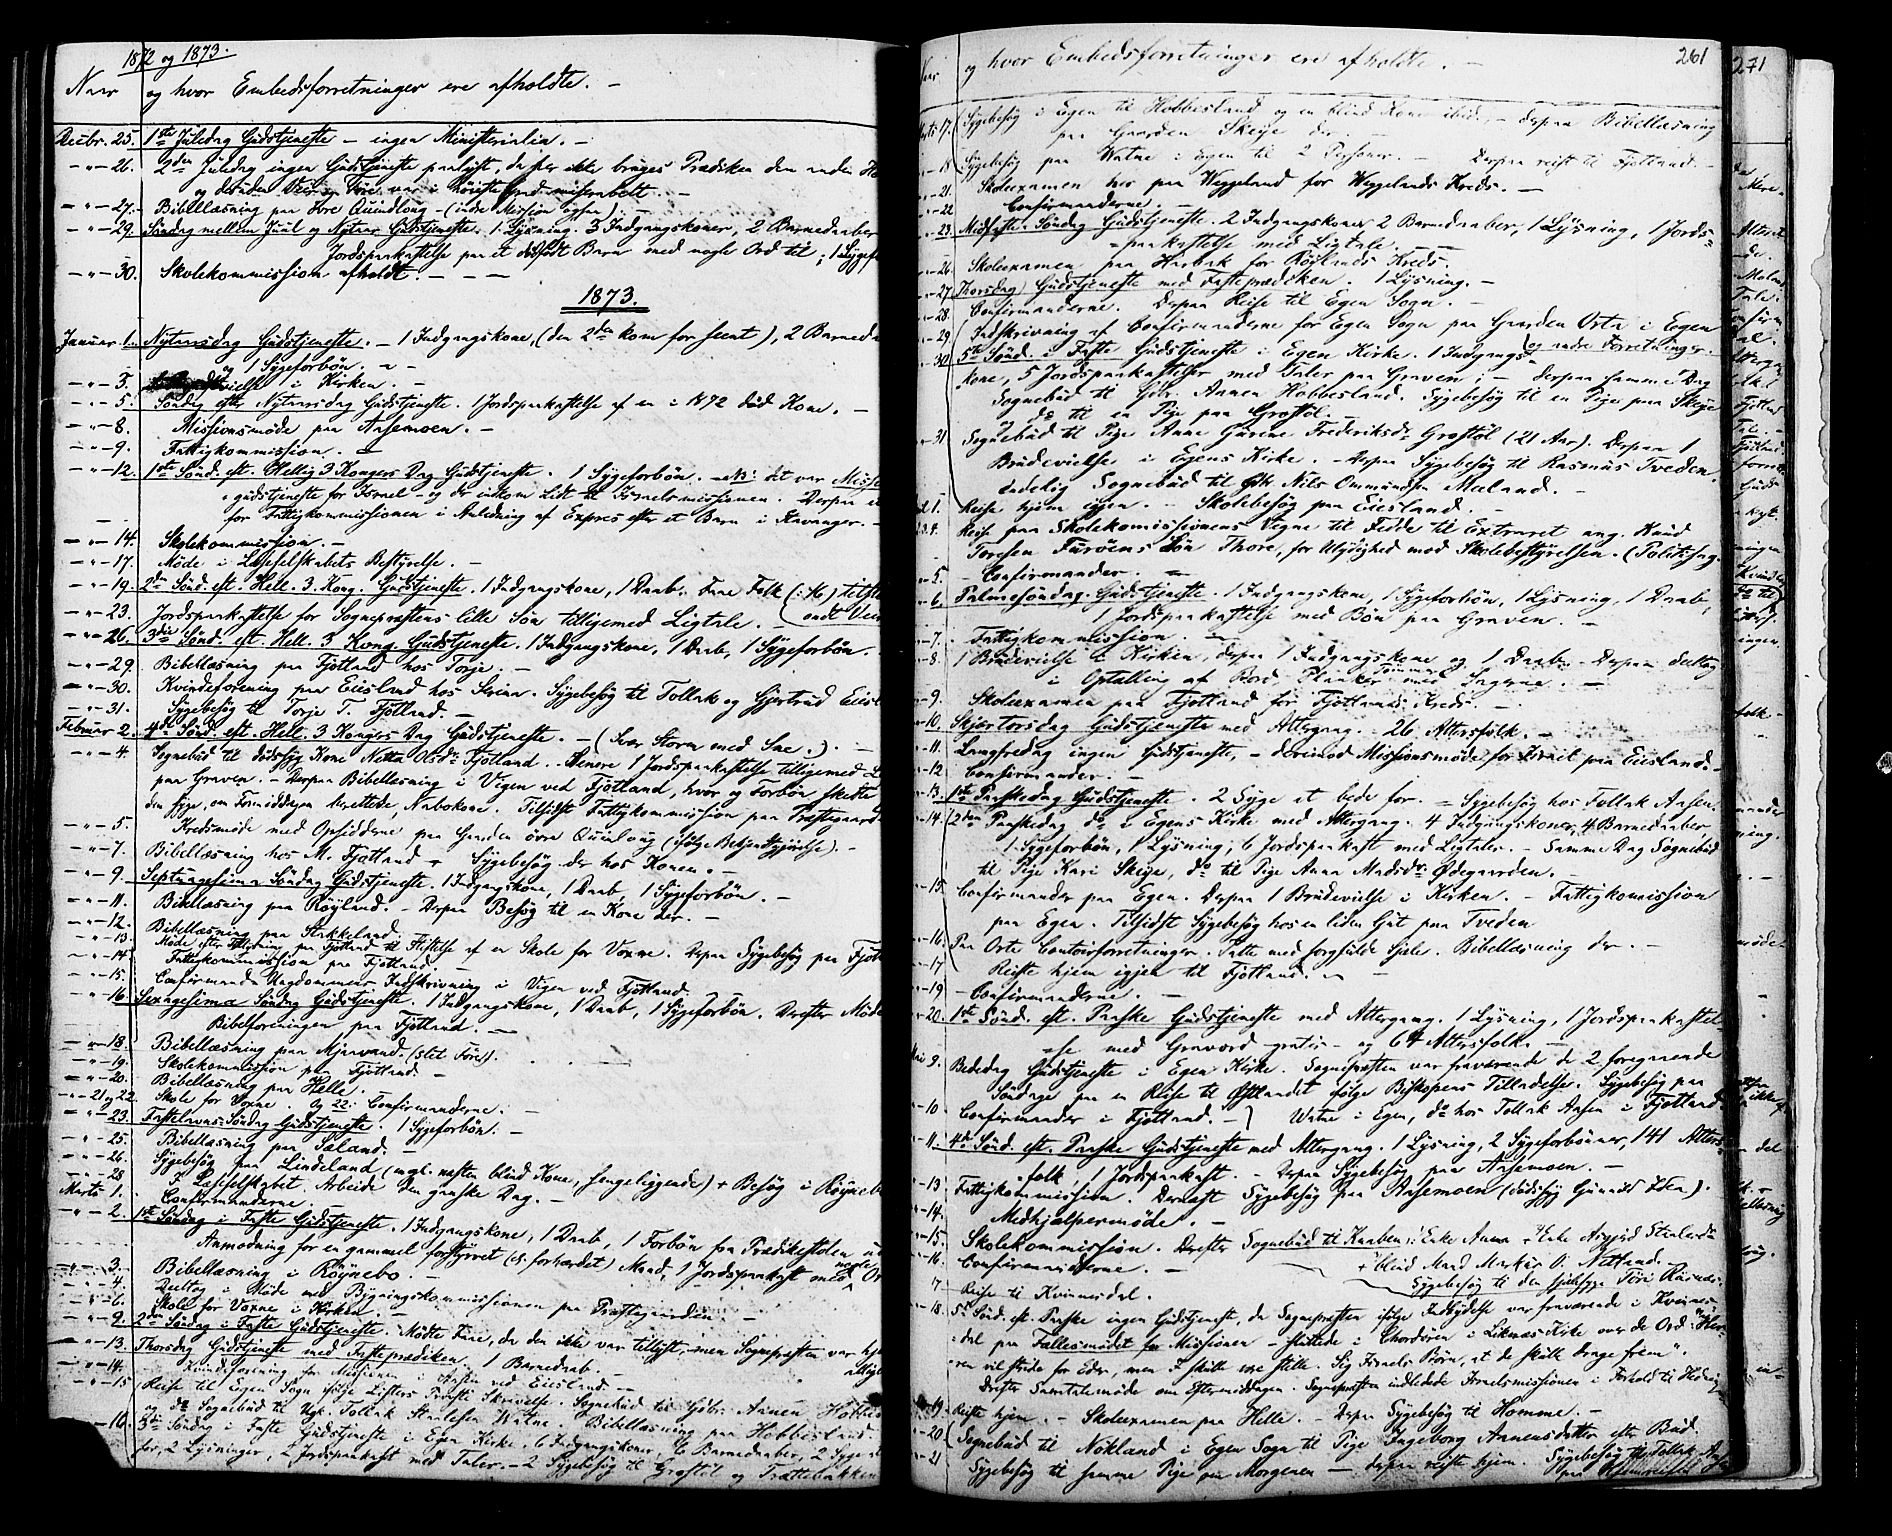 1872 og 1873.
Naar og hvor Embedsforretninger ere afholdte. -
Decbr. 25. 1ste Juledag Gudstjeneste - ingen Ministerialia. -
- " - 26. 2den Juledag ingen Gudstjeneste paalyst, da her ikke bruges Prædiken den anden
og desuden Veir og Føre var i høieste Grad miserabelt. -
- " - 27. Bibellæsning paa Øvre Quindlong - (indre Mission ogsaa). -
- " - 29. Søndag mellem Juul og Nytaar Gudstjeneste. 1 Lysning. 3 Indgangskoner, 2 Barnedaaber
Jordspaakastelse paa et dødfødt Barn med nogle Ord til; 1 Sygef
- " - 30. Skolekommission afholdt. - - -
1873.
Januar 1. Nytaarsdag Gudstjeneste. - 1 Indgangskone, (den 2den kom for seent), 2 Barned
og 1 Sygeforbøn. -
- " - 3. vielse i Kirken. -
- " - 5. Søndag efter Nytaarsdag Gudstjeneste. 1 Jordspaakastelse af en i 1872 død Kone. -
- " - 8. Missionsmøde paa Aasemoen. -
- " - 9. Fattigkommission. -
- " - 12. 1ste Sønd. eft. Hellig 3 Kongers Dag Gudstjeneste. 1 Sygeforbøn. - NB: det var Miss
gudstjeneste for Israel - og der indkom Lidt til Israelsmissionen. Derpaa
for Fattigkommissionen i Anledning af Expres efter et Barn i Stavanger. -
- " - 14. Skolekommission. -
- " - 17. Møde i Læseselskabets Bestyrelse. -
- " - 19. 2den Sønd. eft. Hell. 3. Kong. Gudstjeneste. 1 Indgangskone, 1 Daab. Faae Folk
- " - 23. Jordspaakastelse for Sognepræstens lille Søn tilligemed Ligtale.
- " - 26. 3die Sønd. eft. Hell. 3 Kong. Gudstjeneste. 1 Indgangskone, 1 Daab, 1 Sygeforbøn.
- " - 29. Bibellæsning paa Fjotland hos Torje. -
- " - 30. Kvindeforening paa Eiesland hos Serine. Sygebesøg til Tollak og Gjertrud Eiesl
- " - 31. Sygebesøg til Torje T. Fjotland. -
Februar 2. 4de Sønd. eft. Hell. 3 Kongers Dag Gudstjeneste. - (Svær Storm med Sne.). -
- " - 4. Sognebud til dødssyg Kone Netta Olsdr. Fjotland. Senere 1 Jordspaakastelse tilligemed
paa Graven. - Derpaa Bibellæsning i Vigen ved Fjotland, hvor og Forbøn skette
den syge, om Formiddagen berettede, Nabokone. Tilsidst Fattigkommission paa Præstegaard
- " - 5. Kredsmøde med Opsidderne paa Gaarden øvre Quinlong (ifølge Bekjendtgjørelse). -
- " - 7. Bibellæsning hos M. Fjotland + Sygebesøg der hos Konen. -
- " - 9. Septuagesima Søndag Gudstjeneste. 1 Indgangskone, 1 Daab, 1 Sygeforbøn. -
- " - 11. Bibellæsning paa Røyland. - Derpaa Besøg til en Kone der. -
- " - 12. Bibellæsning paa Stakkeland. -
- " - 13. Møde paa Fjotland til Støttelse af en Skole for Voxne. Derpaa Sygebesøg paa Fjot
- " - 14. Fattigkommission paa Fjotland. -
- " - 15. Confirmands Ungdommens Indskrivning i Vigen ved Fjotland.
- " - 16. Sexagesima Søndag Gudstjeneste. 1 Indgangskone, 1 Daab, 1 Sygeforbøn. Derefter Møde
Bibelforeningen paa Fjotland. -
- " - 18. Bibellæsning paa Mjaavand. (slet Føre).
- " - 19. Skolekommission paa Fjotland. -
- " - 20. Bibellæsning paa Helle. -
- " - 21 og 22. Skole for Voxne. Og 22: Confirmanderne. -
- " - 23. Fastelavns-Søndag Gudstjeneste. 1 Sygeforbøn. -
- " - 25. Bibellæsning paa Sæland. -
- " - 26. Sygebesøg paa Lindeland (nogl. næsten blind Kone, sengeliggende) + Besøg i Røyneb
- " - 28 I Læseselskabet. Arbeide den ganske Dag. -
Marts 1. Confirmanderne -
- " - 2. 1ste Søndag i Faste Gudstjeneste. 1 Indgangskone, 1 Daab, 1 Forbøn fra Prædikestolen
Anmodning for en gammel forstyrret (d: forhærdet) Mand, 1 Jordspaakast. med nogle Or
- " - 3. Bibellæsning i Røynebo. -
- " - 4. Deeltog i Møde med Bygningskommissionen paa Præstegaarden. -
- " - 6. Skole for Voxne i Kirken. -
- " - 9. 2den Søndag i Faste Gudstjeneste. Mødte Faae, da den ikke var tillyst, men Sognepræsten var hj
- " - 13. Thorsdag Gudstjeneste med Fasteprædiken. 1 Barnedaab. -
- " - 14. Kvindeforening for Missionen i Aasen ved Eiesland. -
- " - 15 Reise til Egen Sogn ifølge Listers Provsti Skrivelse. Sognebud til Gdbr. Aanen Hobbes
og do. Sognebud til Tollak Staalesen Watne. Bibellæsning paa Hobbesland.
- " - 16. 3die Søndag i Faste Gudstjeneste i Egen Kirke. 6 Indgangskoner, 6 Barnedaaber, 2 Syge
for, 2 Lysninger, 2 Jordspaakast. med Taler. - 2 Sygebesøg til Grøstøl og Trættebakken
og hvor Embedsforretninger ere afholdte. -
261
271
Marts 17. Sygebesøg i Egen til Hobbesland og en blind Kone ibid., derpaa Bibellæsning
paa Gaarden Skeie der. -
- 18 Sygebesøg paa Watne i Egen til 2 Personer. - Derpaa reist til Fjotland. -
- 21. Skoleexamen her paa Weggeland for Weggelands Kreds. -
- 22. Confirmanderne. -
- 23. Midfaste-Søndag Gudstjeneste. 2 Indgangskoner, 2 Barnedaaber, 1 Lysning, 1 Jords-
paakastelse med Ligtale. -
- 26. Skoleexamen paa Hårbak for Røylands Kreds. -
- 27. Thorsdag Gudstjeneste med Fasteprædiken. 1 Lysning. -
- 28. Confirmanderne. Derpaa Reise til Egen Sogn. -
- 29 Indskrivning af Confirmanderne for Egen Sogn paa Gaarden Orte i Egen
og andre Forretninger.
- 30. 5te Sønd. i Faste Gudstjeneste i Egen Kirke. 1 Indgangs-
kone, 5 Jordspaakastelser med Taler paa Graven; - derpaa samme Dag
Sognebud til Gdbr. Aanen Hobbesland. Sygebesøg til en Pige paa Skeie
do til en Pige paa Grøstøl. -
- 31 Sognebud til Pige Anne Gurine Frederiksdr. Grøstøl (21 Aar). Derpaa 1
Brudevielse i Egens Kirke. - Derpaa Sygebesøg til Rasmus Tveden.
endelig Sognebud til Gbr. Nils Ommundsen Mæland. -
1. Reise hjem igjen. - Skolebesøg paa Eiesland. -
3.4. Reise paa Skolekomissionens Vegne til Fedde til Extraret ang. Knud
Toresen Furøens Søn Thore, for Ulydighed mod Skolebestyrelsen. (Politisag.
- 5. - Confirmander. -
- 6. Palmesøndag Gudstjeneste. 1 Indgangskone, 1 Sygeforbøn, 1 Lysning, 1 Daab,
1 Jordspaakastelse med Bøn paa Graven. -
- 7. Fattigkommission. -
- 8. 1 Brudevielse i Kirken, derpaa 1 Indgangskone og 1 Daab. Derpaa deeltog
i Optælling af Bord, Planker, Tømmer med
- 9. Skoleexamen paa Fjotland for Fjotlands Kreds. -
- 10. Skjærtorsdag Gudstjeneste med Altergang. 26 Altersfolk. -
- 11. Langfredag ingen Gudstjeneste, - derimod Missionsmøde for Israel paa Eiesland. -
- 12 Confirmander. -
- 13. 1ste Paaskedag Gudstjeneste. 2 Syge at bede for. - Sygebesøg hos Tollak Aasen.
- 14. 2den Paaskedag do i Egens Kirke med Altergang. 4 Indgangskoner, 4 Barnedaaber,
1 Sygeforbøn, 1 Lysning, 6 Jordspaakast. med Ligtaler. - Samme Dag Sognebud
til Pige Kari Skeie, do til Pige Anna Madsdr. Ødegaarden. -
- 15. Confirmander paa Egen. Derpaa 1 Brudevielse i Kirken. - Fattigkomission
paa Egen. Tilsidst Sygebesøg hos en liden Gut paa Tveden
- 16. Paa Orte Contoirforretninger. Talte med sorgfulde Sjele. Bibellæsning der. -
- 17 Reiste hjem igjen til Fjotland. -
- 19 - Confirmanderne. -
- 20. 1ste Sønd. eft. Paaske Gudstjeneste med Altergang. 1 Lysning, 1 Jordspaakastel-
se med Gravord - gratis - og 64 Altersfolk. -
Mai 9. Bededag Gudstjeneste i Egen Kirke. Sognepræsten var fraværende de 2 foregaaende
Søndage paa en Reise til Østlandet ifølge Biskopens Tilladelse. Sygebesøg paa
- 10 Confirmander i Fjotland. - } Watne i Egen, do hos Tollak Aasen i Fjotland
- 11. 4de Sønd. eft. Paaske Gudstjeneste med Altergang. 1 Lysning, 2 Sygeforbønner, 141 Alters-
folk, 1 Jordspaakast. - Derpaa Sygebesøg paa Aasemoen. -
- 13 Fattigkommission. Dernæst Sygebesøg paa Aasemoen (dødssyg Gunild
- 14. Medhjælpermøde. -
- 15. Skolekommission. Derefter Sognebud til Knaben: Enke Anna + Enke
- 16. Confirmanderne. - + blind Mand Markus O. Netland.
Sygebesøg til den sjelesyge Tøri
7 Reise til Kvinnesdal. -
- 18. 5te Sønd. eft. Paaske ingen Gudstjeneste, da Sognepræsten ifølge Indbydelse var fraværende i Kvinnes-
dal paa Fællesmødet for Missionen - sluttede i Chordøren i Liknes Kirke over de Ord: "Her-
ren vil stride for Eder, men I skulle tie stille. Sig Israels Børn, at de skulle drage frem".
Derefter Samtalemøde om Eftermiddagen. Sognepræsten indledede Israelsmissionen i Forhold til Hedning
- 19. Reiste hjem. - Skoleexamen paa Helle. - Derpaa Sygebesøg til Homme. -
- 20 Sognebud til Nökland i Egen Sogn til Pige Ingeborg Aanensdatter efter Bud.
- 21 Sygebesøg til samme Pige om Morgenen - derpaa reiste hjem. Sygebesøg til Tollak Aas